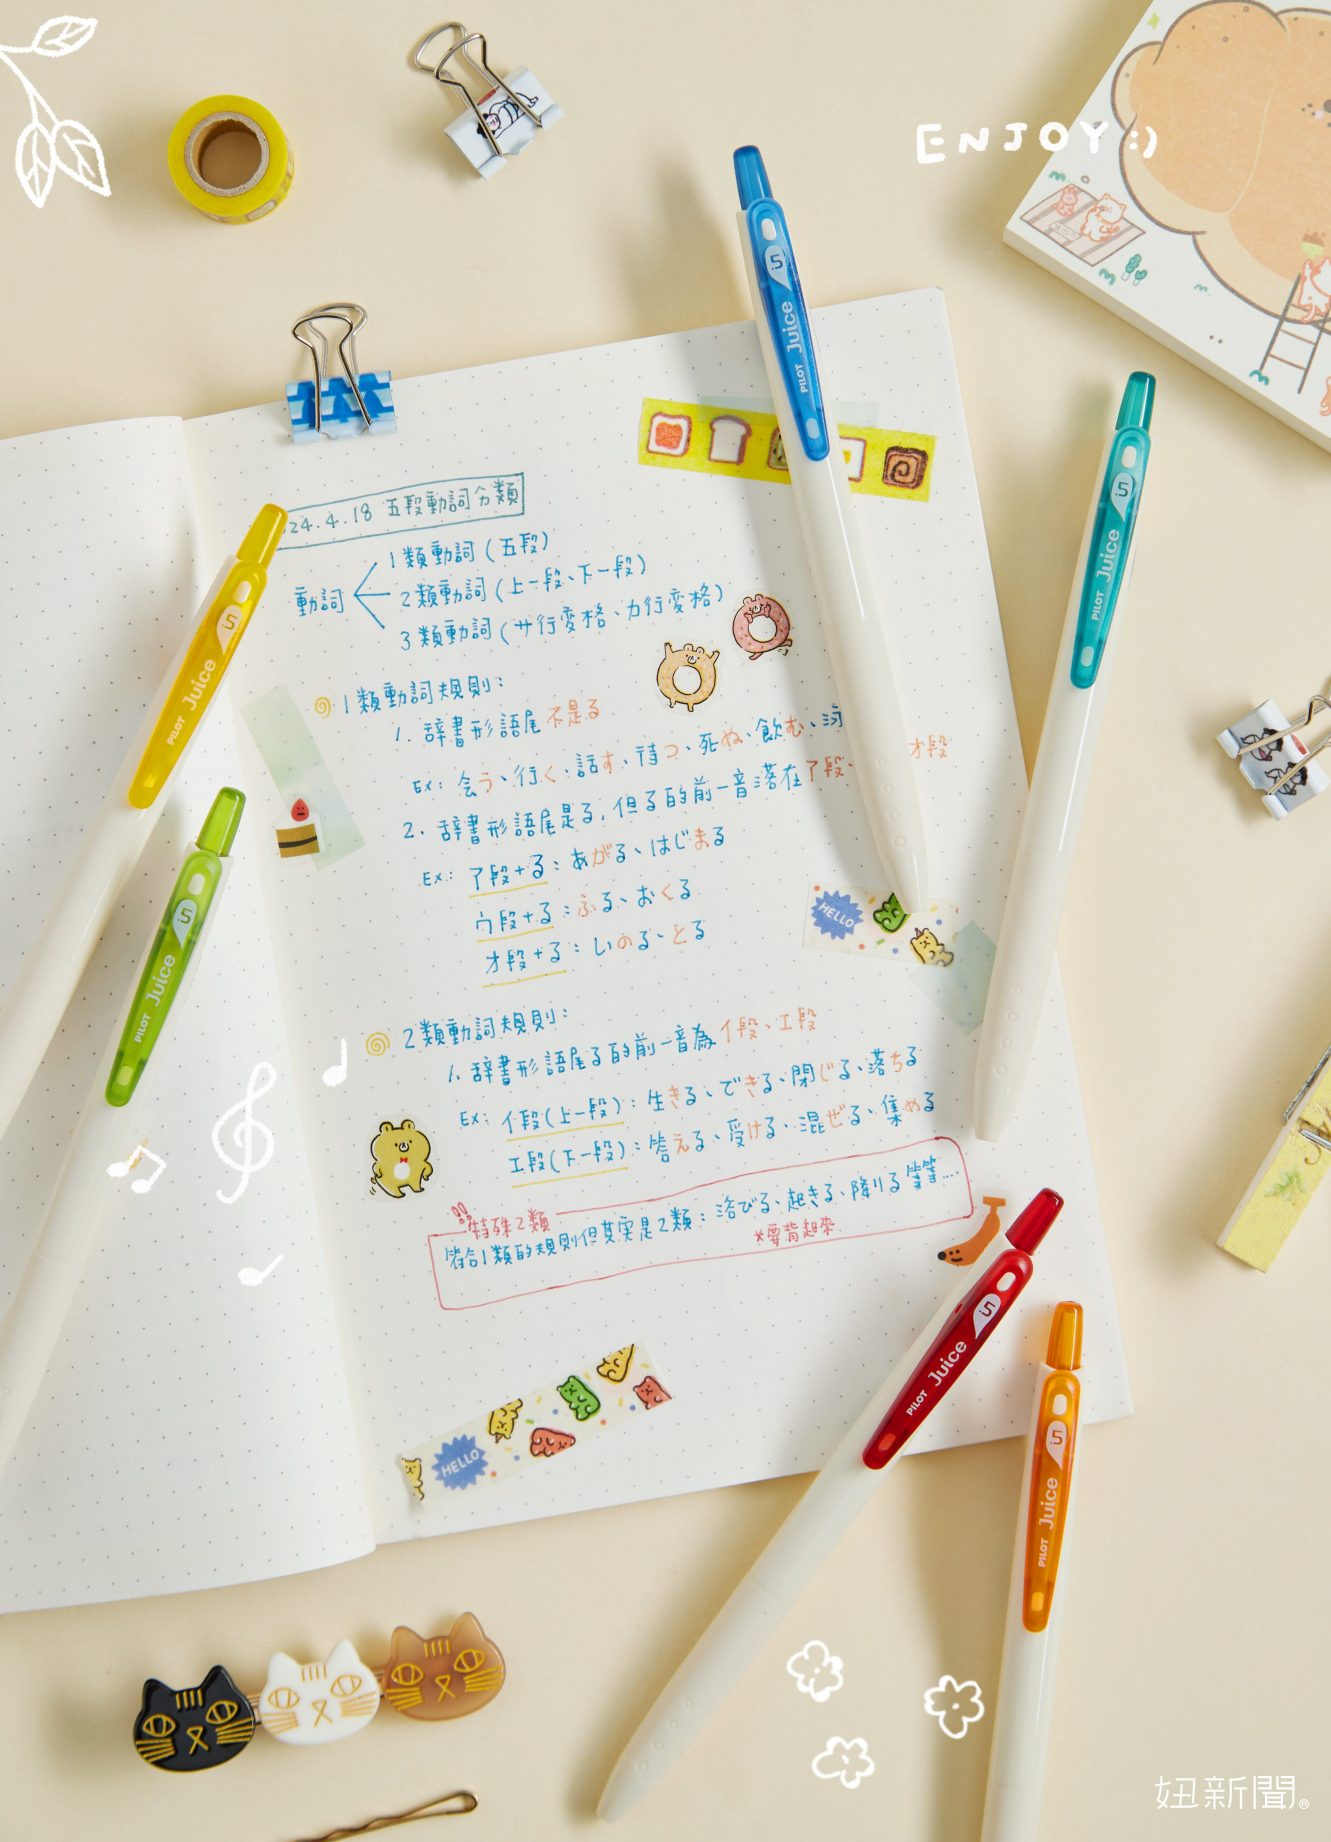 ENJOY:)
24.4.18 五段動詞分類
動詞
1類動詞(五段)
2類動詞(上一段、下一段)
3類動詞(サ行変格、カ行変格)
1類動詞規則:
1. 辞書形語尾不是る
EX: 会う、行く、話す、待つ、死ぬ、飲む、
2. 辞書形語尾是る,但る的前一音落在ア段、 オ段
EX: ア段+る:あがる、はじまる
ウ段+る:ふる、おくる
オ段+る:いのる、とる
2類動詞規則:
1. 辞書形語尾る的前一音為イ段、エ段
EX: イ段(上一段):生きる、できる、閉じる、落ちる
エ段(下一段):答える、受ける、混ぜる、集める
!!特殊2類
符合1類的規則但其実是2類:浴びる、起きる、降りる等等....
*要背起來
HELLO
HELLO
PILOT Juice 5
PILOT Juice 5
PILOT Juice 5
PILOT Juice 5
PILOT Juice 5
PILOT Juice 5
妞新聞